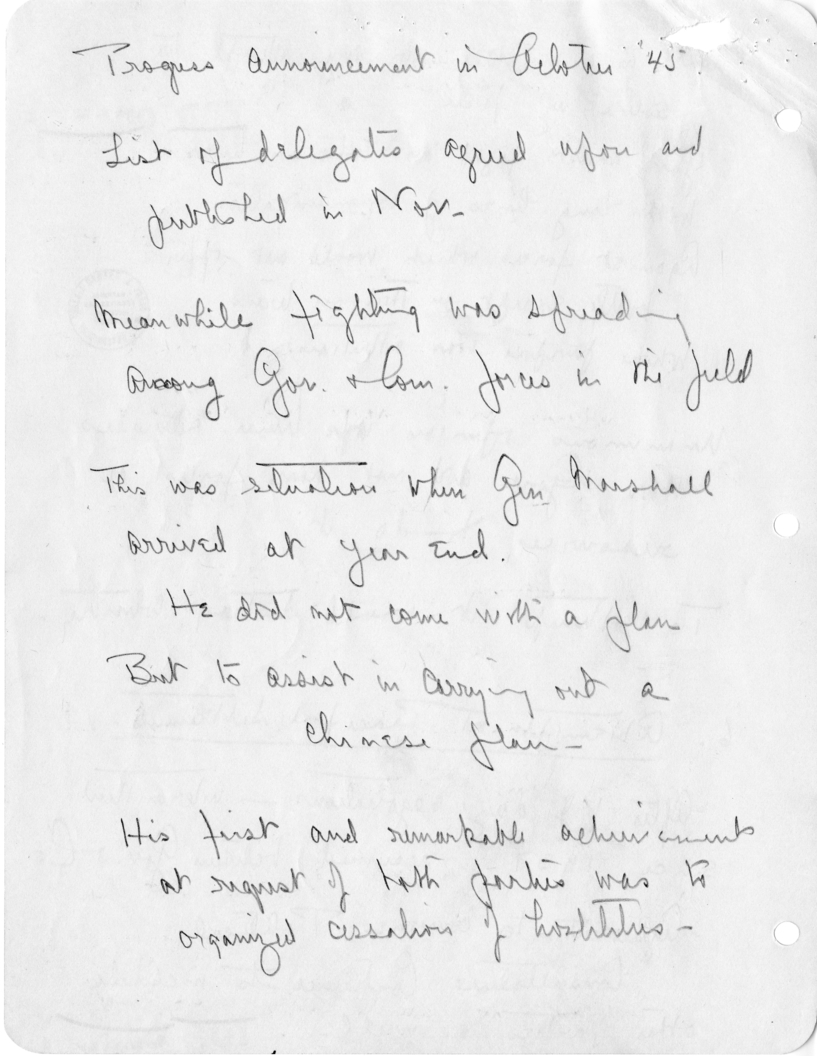 Progress announcement in October '45.
List of delegates agreed upon and
published in Nov-
Meanwhile fighting was spreading
among Gov. & Com. forces in the field
This was situation when Gen. Marshall
arrived at year end.
He did not come with a plan
But to assist in carrying out a
Chinese plan-
His first and remarkable achievements
at request of both parties was to
organized cessation of hostilities-